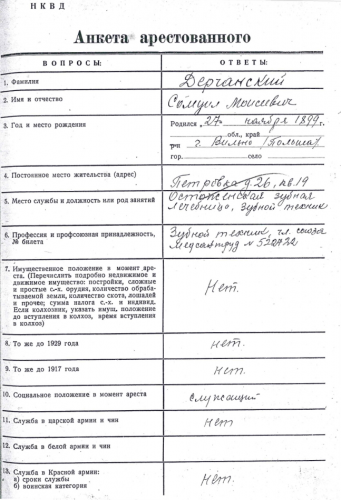 НКВД
Анкета арестованного
ВОПРОСЫ:
ОТВЕТЫ:
1. Фамилия
Дерчанский
2. Имя и отчество
Самуил Моисеевич
3. Год и место рождения
Родился „27" ноября 1899 г.
обл., край
р-н г. Вильно (Польша)
гор. село
4. Постоянное место жительства (адрес)
Петровка д 26, кв. 19
5. Место службы и должность или род занятий
Остоженская зубная
лечебница, зубной техник
6. Профессия и профсоюзная принадлежность,
№ билета
Зубной техник, чл. союза
Медсантруд № 520722
7. Имущественное положение в момент аре-
ста. (Перечислить подробно недвижимое и
движимое имущество: постройки, сложные
и простые с.-х. орудия, количество обраба-
тываемой земли, количество скота, лошадей
и прочее; сумма налога с.-х. и индивид.
Если колхозник, указать имущ. положение
до вступления в колхоз, время вступления
в колхоз)
Нет.
8. То же до 1929 года
нет.
9. То же до 1917 года
нет.
10. Социальное положение в момент ареста
служащий
11. Служба в царской армии и чин
нет
12. Служба в белой армии и чин
нет.
13. Служба в Красной армии:
а) сроки службы
б) воинская категория
нет.